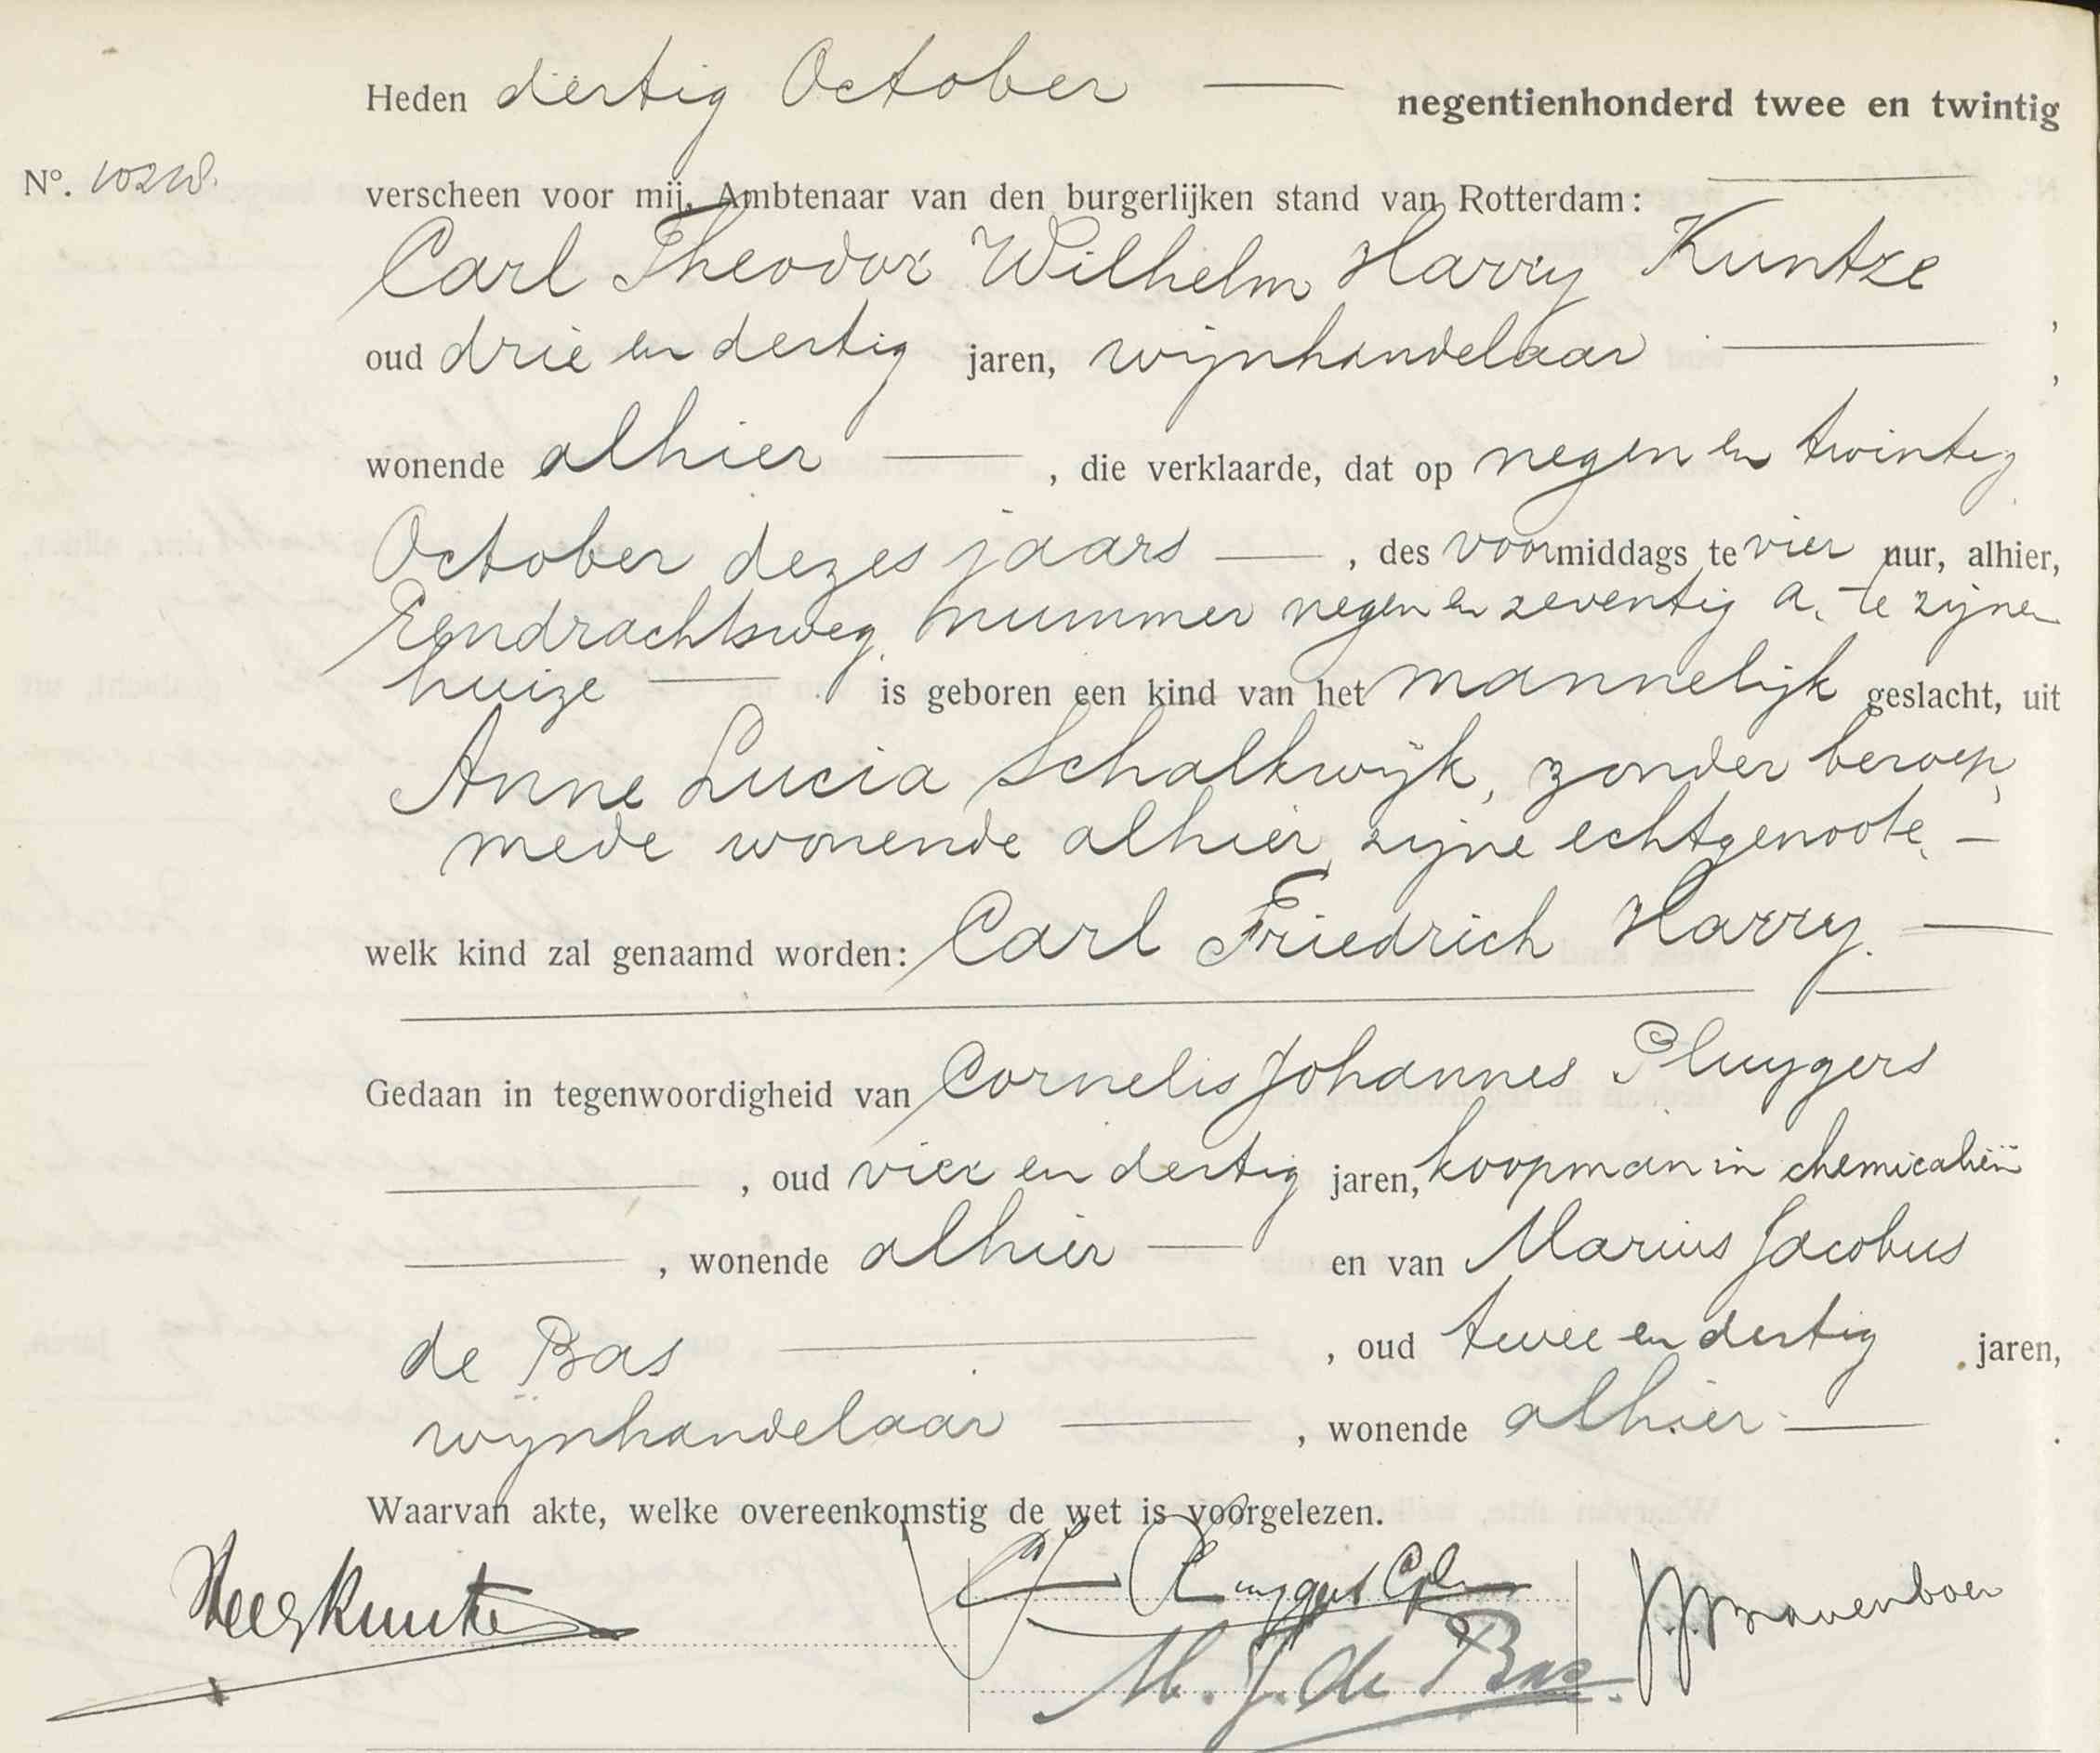 Heden dertig October — negentienhonderd twee en twintig
Nº.
verscheen voor mij, Ambtenaar van den burgerlijken stand van Rotterdam:
Carl Theodor Wilhelm Harry Kuntze
oud drie en dertig jaren, wijnhandelaar — ,
wonende alhier — , die verklaarde, dat op negen en twintig
October dezes jaars — , des voormiddags te vier uur, alhier,
Eendrachtsweg nummer negen en zeventig a, te zijnen
huize — is geboren een kind van het mannelijk geslacht, uit
Anne Lucia Schalkwijk, zonder beroep,
mede wonende alhier, zijne echtgenoote, —
welk kind zal genaamd worden: Carl Friedrich Harry. —
Gedaan in tegenwoordigheid van Cornelis Johannes Pluygers
, oud vier en dertig jaren, koopman in chemicaliën
, wonende alhier — en van Marius Jacobus
de Bas — , oud twee en dertig jaren,
wijnhandelaar — , wonende alhier — .
Waarvan akte, welke overeenkomstig de wet is voorgelezen.
M. J. de Bas.